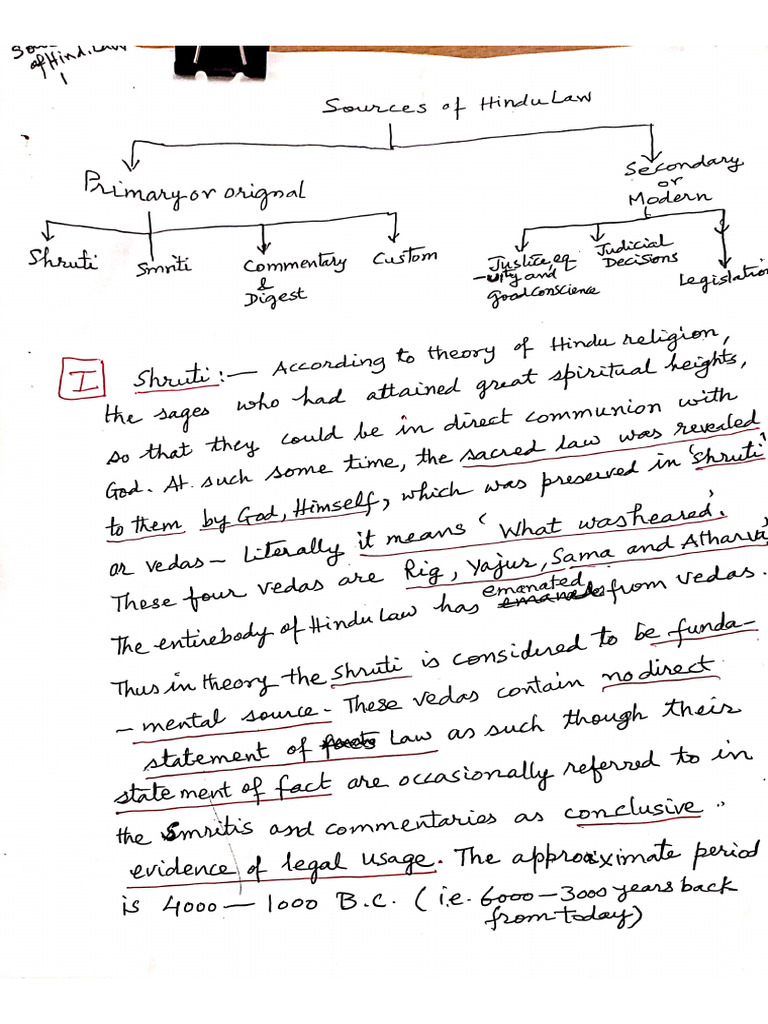 Sou
of Hind. Law
1
Sources of Hindu Law
Primary or orignal
Secondary
or
Modern
Shruti
Smriti
Commentary
&
Digest
Custom
Justice, eq
-uity and
good conscience
Judicial
Decisions
Legislation
I Shruti :— According to theory of Hindu religion,
the sages who had attained great spiritual heights,
so that they could be in direct communion with
God. At such some time, the sacred law was revealed
to them by God, Himself, which was preserved in 'Shruti'
or vedas — Literally it means 'What was heared'.
These four vedas are Rig, Yajur, Sama and Atharva,
The entire body of Hindu Law has emanated from vedas.
Thus in theory the Shruti is considered to be funda—
— mental source. These vedas contain no direct
statement of facts Law as such though their
statement of fact are occasionally referred to in
the Smritis and commentaries as conclusive
evidence of legal usage. The approximate period
is 4000 — 1000 B.C. (i.e. 6000 — 3000 years back
from today)